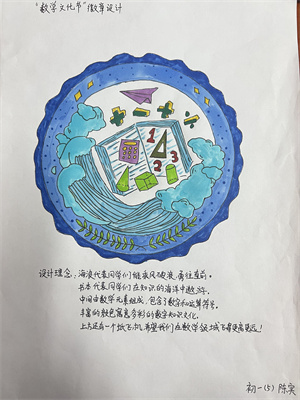 "数学文化节"徽章设计
1
2
3
设计理念：海浪代表同学们继乘风破浪，勇往直前。
书本代表同学们在知识的海洋中遨游。
中间由数学元素组成，包含了数字和运算符号。
丰富的颜色寓意多彩的数学知识文化。
上方还有一个纸飞机，希望我们在数学领域飞得更高更远！
初一(5) 陈奕